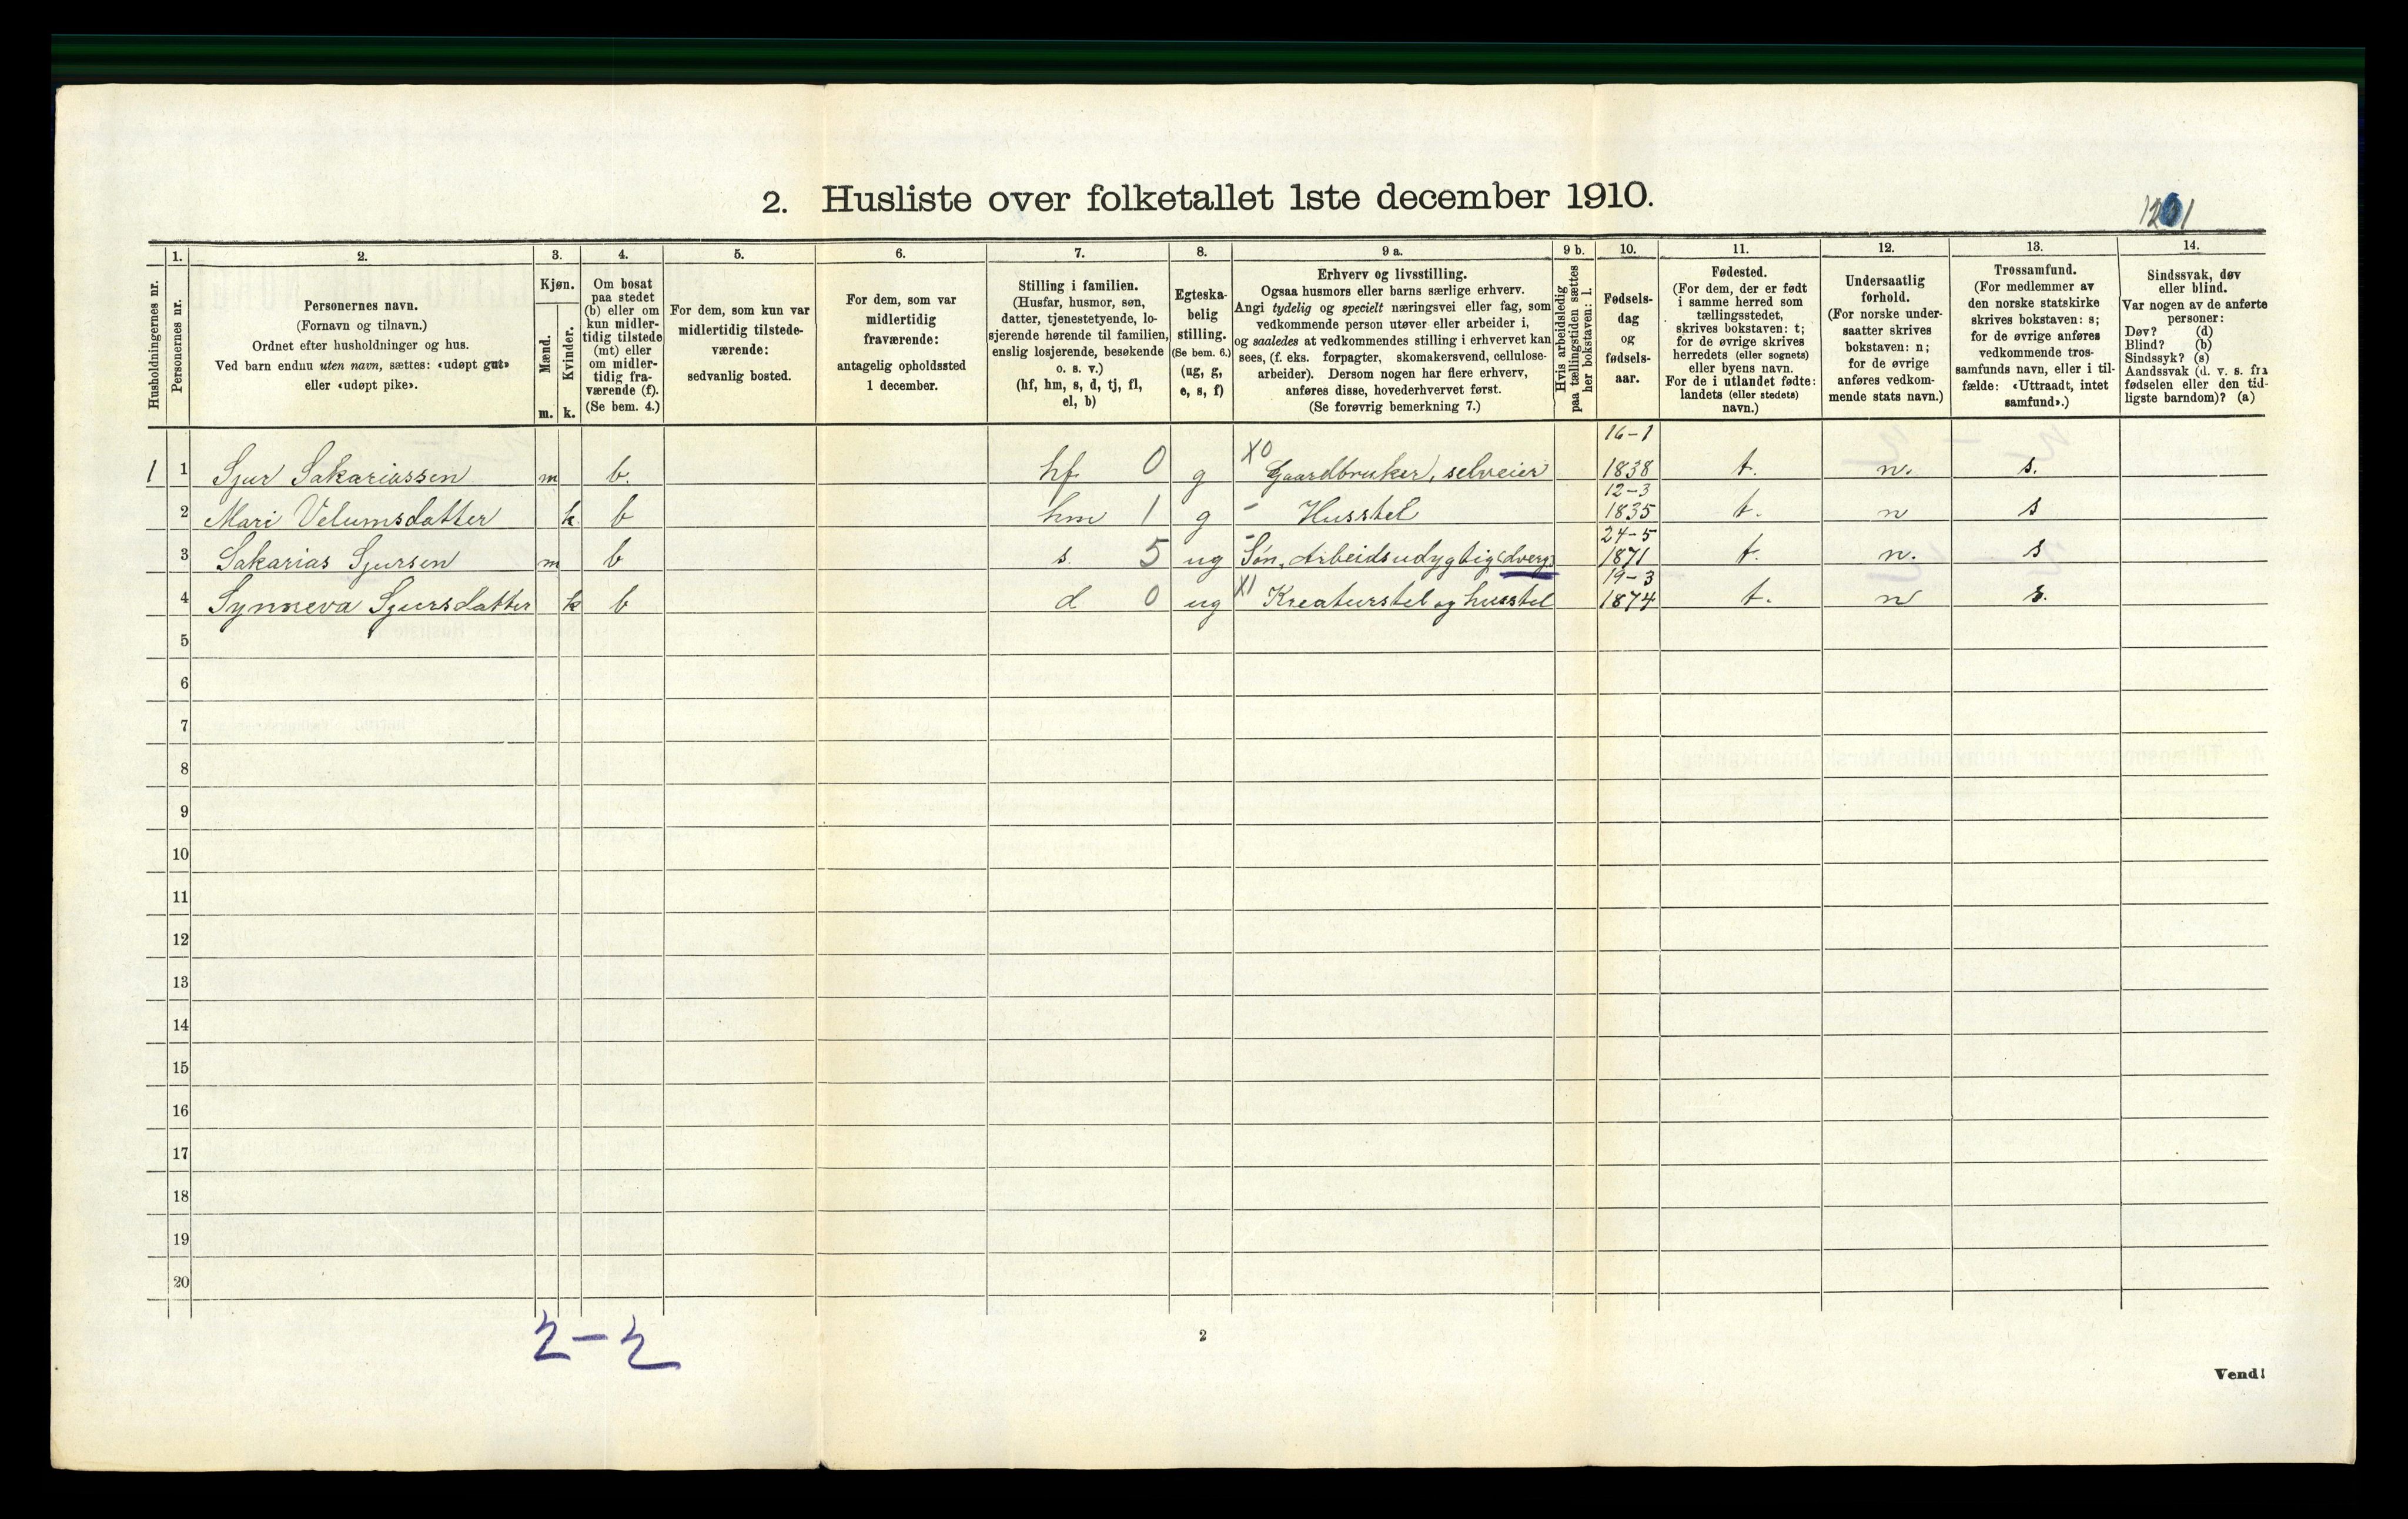 2. Husliste over folketallet 1ste december 1910.
1201
Husholdningernes nr.
1.
Personernes nr.
2.
Personernes navn.
(Fornavn og tilnavn.)
Ordnet efter husholdninger og hus.
Ved barn endnu uten navn, sættes: «udøpt gut»
eller «udøpt pike».
3.
Kjøn.
Mænd.
Kvinder.
m. k.
4.
Om bosat
paa stedet
(b) eller om
kun midler-
tidig tilstede
(mt) eller
om midler-
tidig fra-
værende (f).
(Se bem. 4.)
5.
For dem, som kun var
midlertidig tilstede-
værende:
sedvanlig bosted.
6.
For dem, som var
midlertidig
fraværende:
antagelig opholdssted
1 december.
7.
Stilling i familien.
(Husfar, husmor, søn,
datter, tjenestetyende, lo-
sjerende hørende til familien,
enslig losjerende, besøkende
o. s. v.)
(hf, hm, s, d, tj, fl,
el, b)
8.
Egteska-
belig
stilling.
(Se bem. 6.)
(ug, g,
e, s, f)
9 a.
Erhverv og livsstilling.
Ogsaa husmors eller barns særlige erhverv.
Angi tydelig og specielt næringsvei eller fag, som
vedkommende person utøver eller arbeider i,
og saaledes at vedkommendes stilling i erhvervet kan
sees, (f. eks. forpagter, skomakersvend, cellulose-
arbeider). Dersom nogen har flere erhverv,
anføres disse, hovederhvervet først.
(Se forøvrig bemerkning 7.)
9 b.
Hvis arbeidsledig
paa tællingstiden sættes
her bokstaven: l.
10.
Fødsels-
dag
og
fødsels-
aar.
11.
Fødested.
(For dem, der er født
i samme herred som
tællingsstedet,
skrives bokstaven: t;
for de øvrige skrives
herredets (eller sognets)
eller byens navn.
For de i utlandet fødte:
landets (eller stedets)
navn.)
12.
Undersaatlig
forhold.
(For norske under-
saatter skrives
bokstaven: n;
for de øvrige
anføres vedkom-
mende stats navn.)
13.
Trossamfund.
(For medlemmer av
den norske statskirke
skrives bokstaven: s;
for de øvrige anføres
vedkommende tros-
samfunds navn, eller i til-
fælde: «Uttraadt, intet
samfund».)
14.
Sindssvak, døv
eller blind.
Var nogen av de anførte
personer:
Døv? (d)
Blind? (b)
Sindssyk? (s)
Aandssvak (d. v. s. fra
fødselen eller den tid-
ligste barndom)? (a)
1 1 Sjur Sakariassen m b. hf 0 g X0 Gaardbruker, selveier 16-1 1838 t. n. s.
2 Mari Velumsdatter k b hm 1 g - Husstel 12-3 1835 t. n s
3 Sakarias Sjursen m b s. 5 ug - Søn, Arbeidsudygtig (dverg) 24-5 1871 t. n. s
4 Synneva Sjursdatter k b d 0 ug X1 Kreaturstel og husstel 19-3 1874 t. n s.
5
6
7
8
9
10
11
12
13
14
15
16
17
18
19
20
2-2
2
Vend!